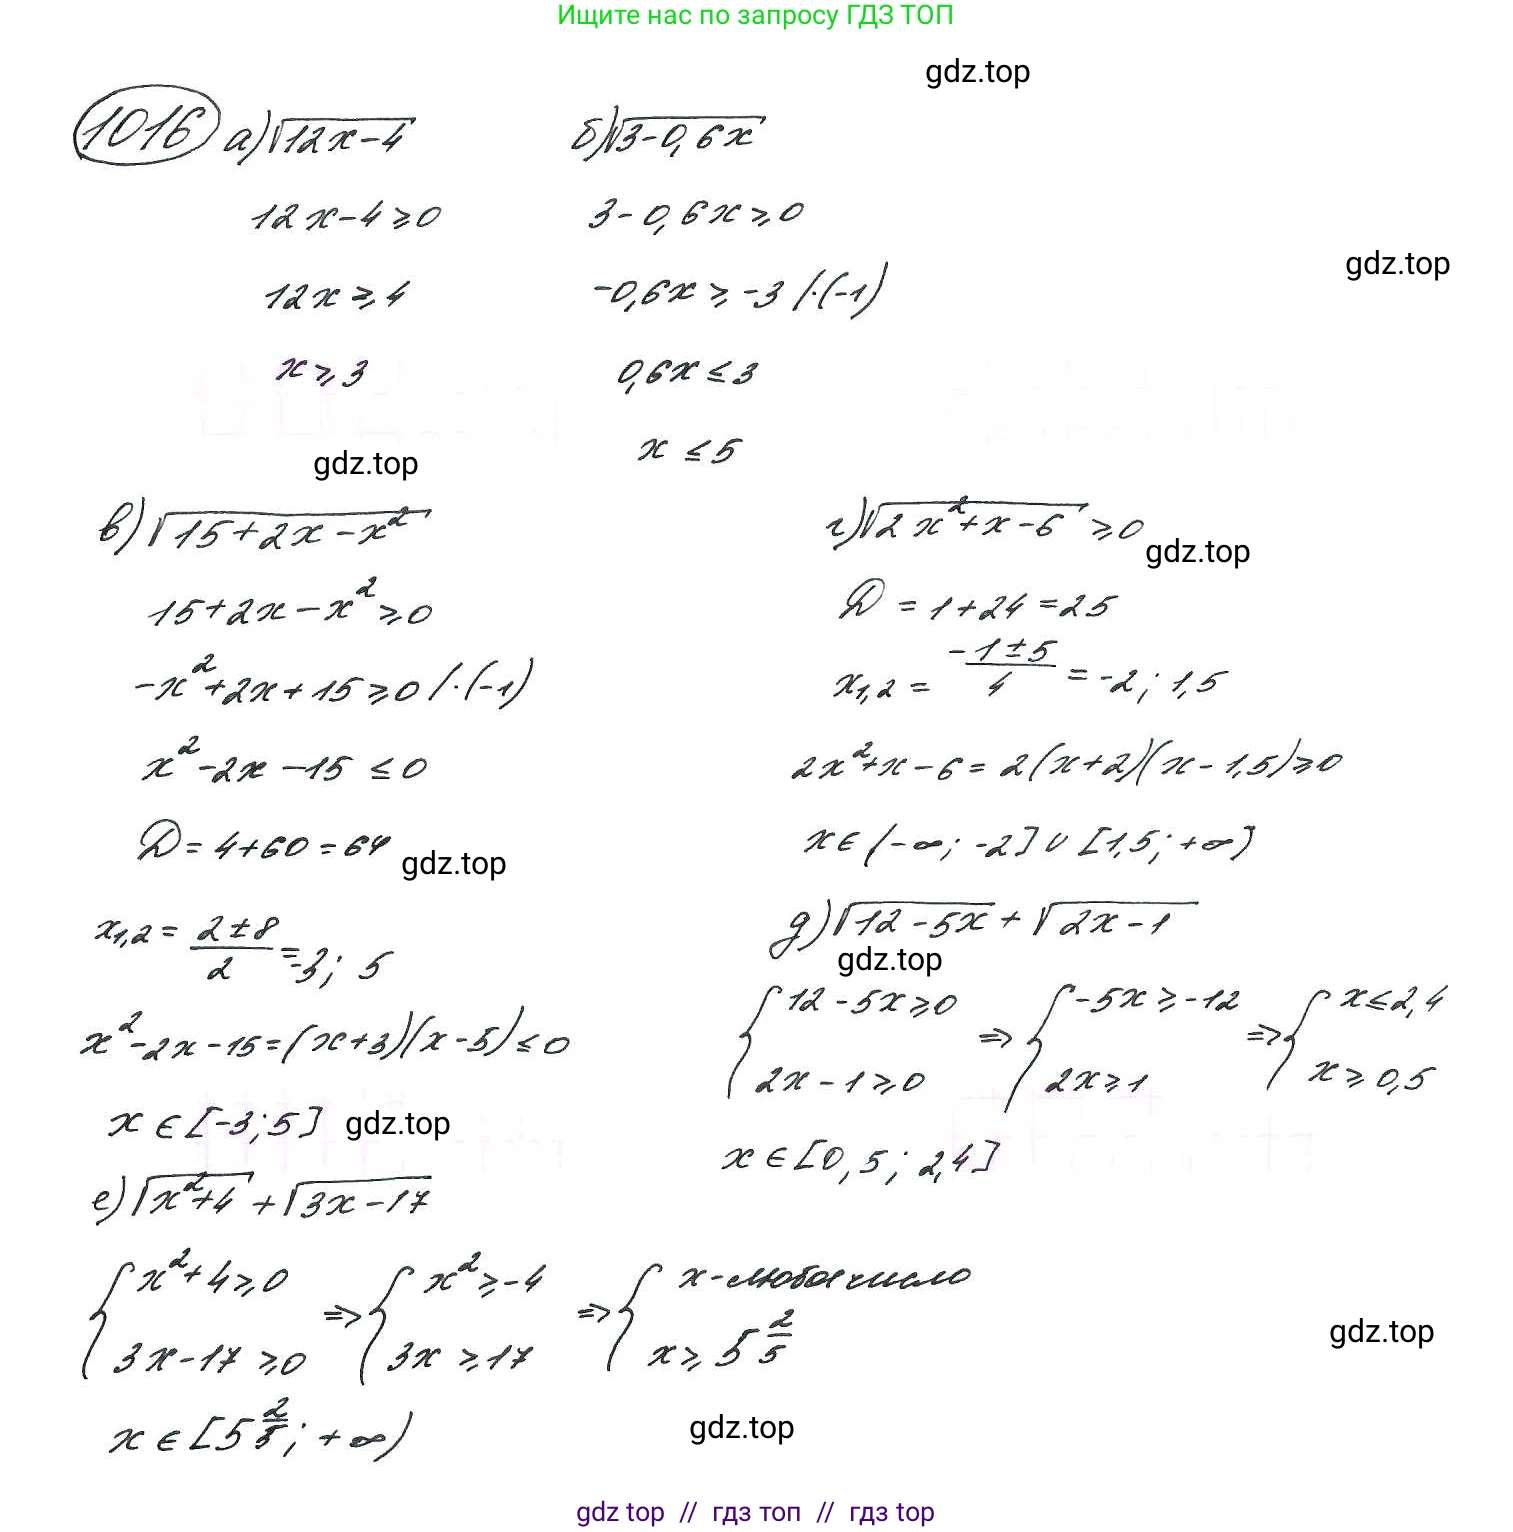 Ищите нас по запросу ГДЗ ТОП
gdz.top
1016 а) √12x-4
12x-4≥0
12x≥4
x≥3
б) √3-0,6x
3-0,6x≥0
-0,6x≥-3 /·(-1)
0,6x≤3
x≤5
gdz.top
gdz.top
в) √15+2x-x²
15+2x-x²≥0
-x²+2x+15≥0 /·(-1)
x²-2x-15≤0
D=4+60=64
gdz.top
x1,2= (2±8)/2 =-3; 5
x²-2x-15=(x+3)(x-5)≤0
x∈[-3;5]
gdz.top
г) √2x²+x-6 ≥0
gdz.top
D=1+24=25
x1,2= (-1±5)/4 =-2; 1,5
2x²+x-6=2(x+2)(x-1,5)≥0
x∈(-∞; -2]∪[1,5; +∞)
д) √12-5x + √2x-1
gdz.top
{12-5x≥0 => {-5x≥-12 => {x≤2,4
2x-1≥0 2x≥1 x≥0,5
x∈[0,5; 2,4]
е) √x²+4 + √3x-17
{x²+4≥0 => {x²≥-4 => {x-любое число
3x-17≥0 3x≥17 x≥5 2/5
x∈[5 2/5; +∞)
gdz.top
gdz.top
gdz top // гдз топ // гдз top